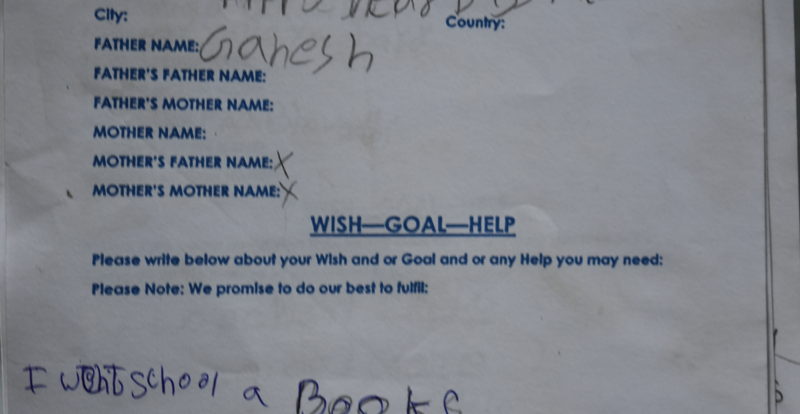 City: Country:
FATHER NAME: Ganesh
FATHER'S FATHER NAME:
FATHER'S MOTHER NAME:
MOTHER NAME:
MOTHER'S FATHER NAME: X
MOTHER'S MOTHER NAME: X
WISH—GOAL—HELP
Please write below about your Wish and or Goal and or any Help you may need:
Please Note: We promise to do our best to fulfill:
I school a Books